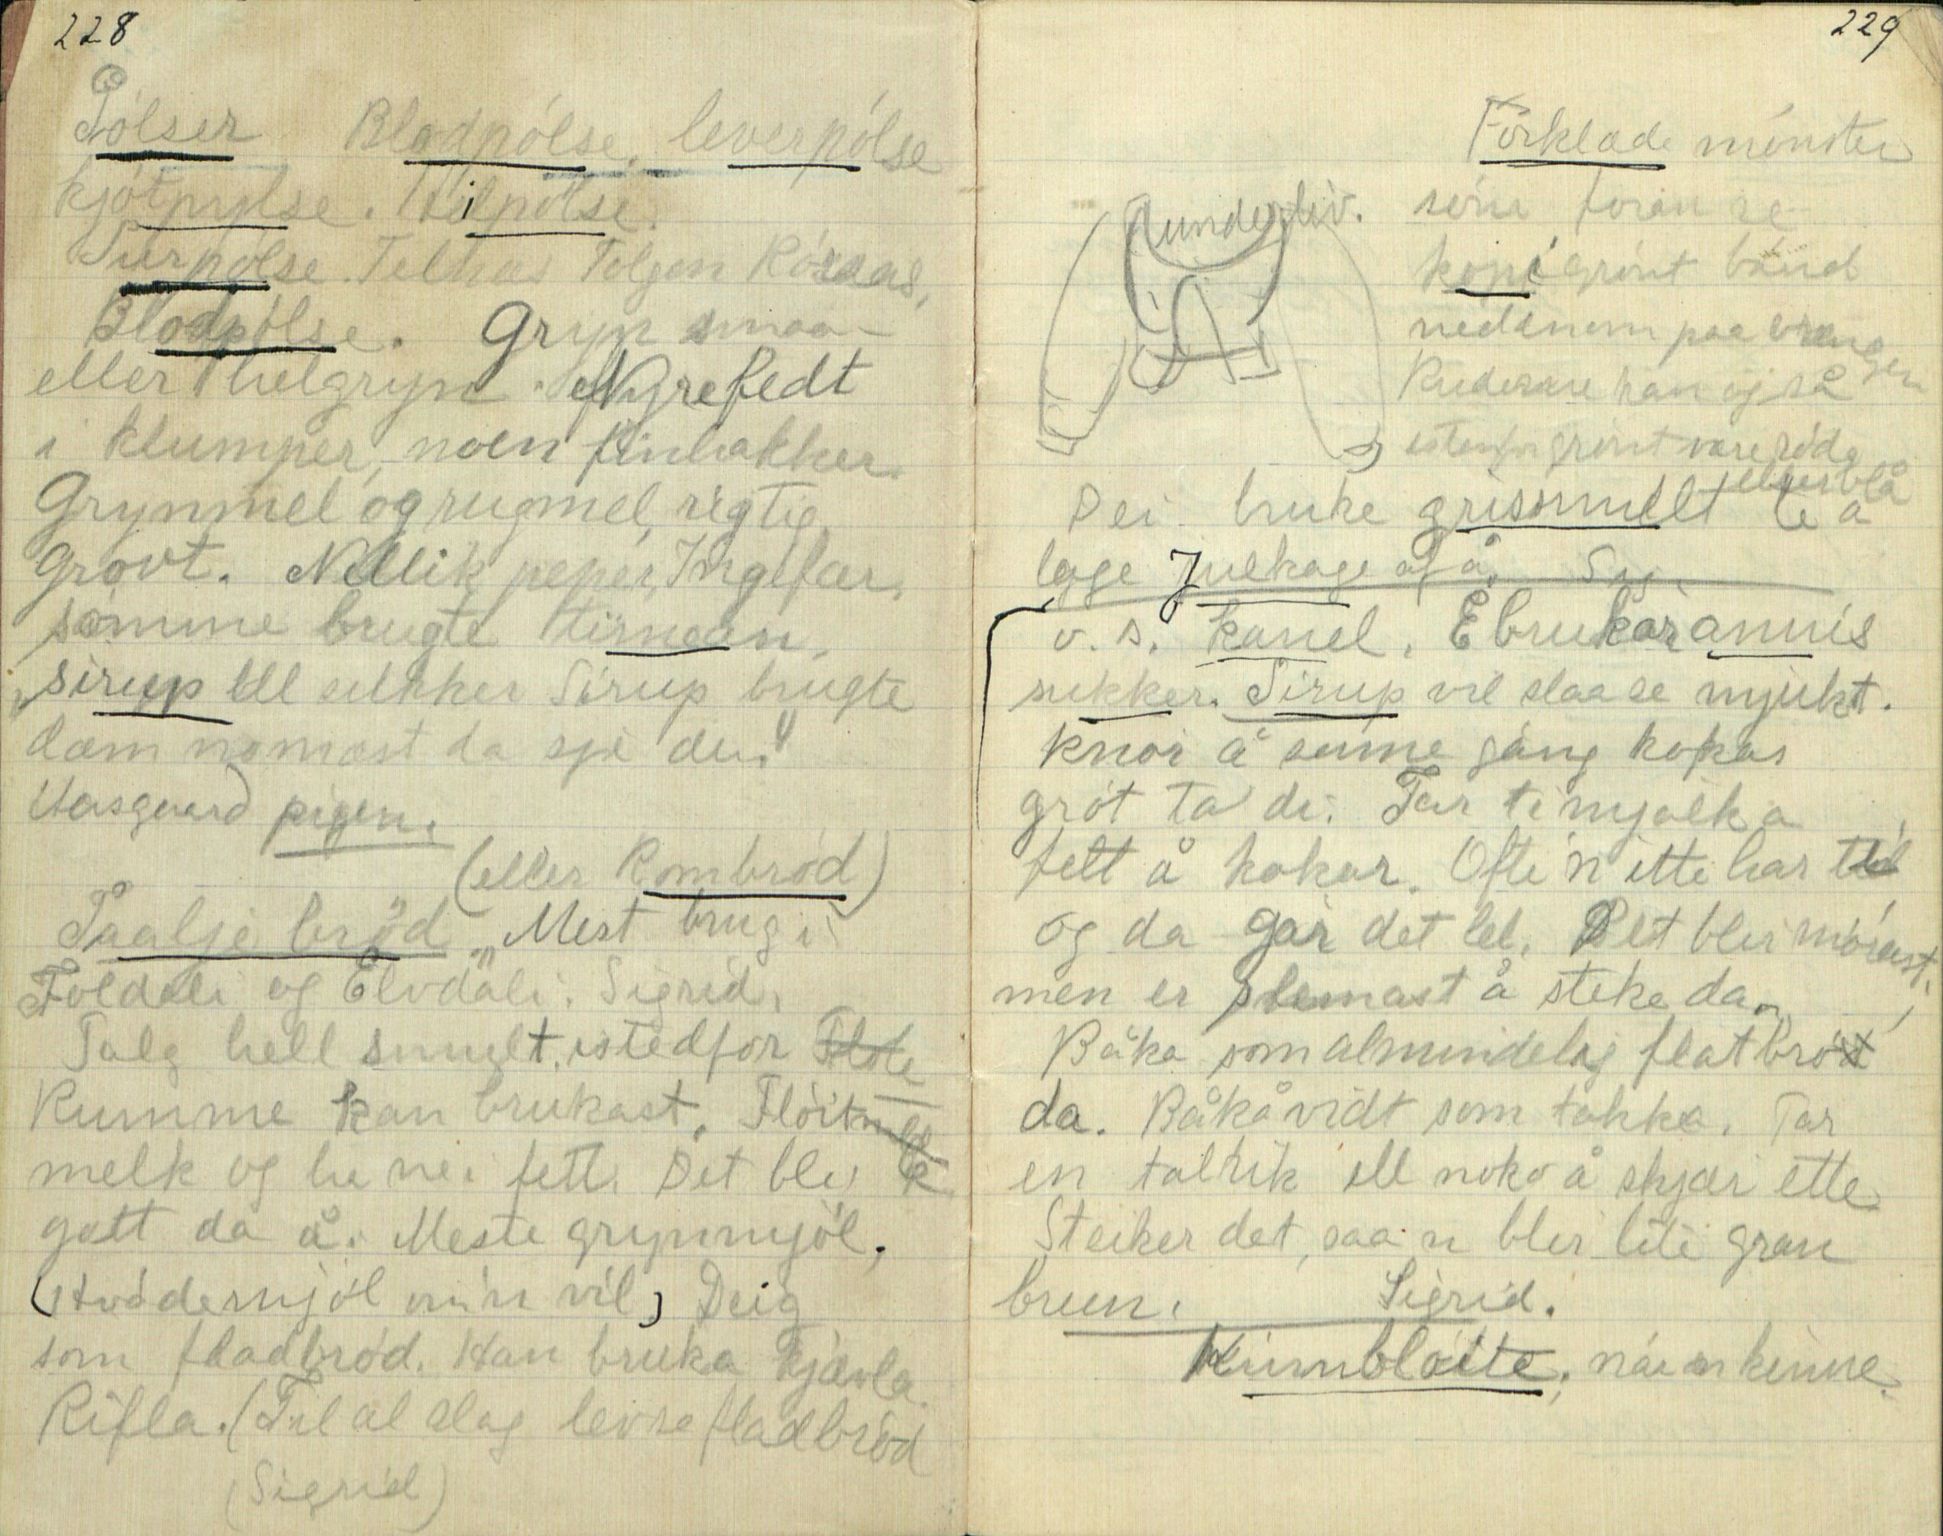 228
Pölser Blodpölse. leverpölse
kjötpylse. pölse.
Turpölse. Tolgen Röraas,
Blodpölse. Gryn smaa-
eller helgryn. Nyrefedt
i klumper, noen finhakker.
Grynmel og rugmel, rigtig
grovt. Nellik peper, Ingefær,
somme brugte timian,
sirup ell sukker Sirup brugte
dæm nomast da
Aasgaard pigen.
(eller Kombröd)
Taalje bröd „ Mest brug i
Foldali og Elvdali. Sigrid.
Talg hell smult, istedfor Flöte
Rumme kan brukast. Flöit
melk og fett. Det blei
gott da å. Meste grynmjöl.
(Hvödemjöl om'n vil) Deig
som fladbröd. Han bruka kjævla
Rifla. (Til al slag levse fladbröd
(Sigrid)
229
Förklæde mönster
underliv. som foran se
kopi grönt bånd
nedenom paa vrangen
han og så
istenfor grönt vare röde
eller blå
Dei bruke grissmult te å
lage Julkage af å. Sig.
v. s. kanel. E brukar annis
sukker. Sirup vil slaa se mjukt.
Knor å somme gång kokas
gröt ta di. Tar ti mjølk a
fett å kokar. Ofte 'n itte har till
og da gar det lel. Det blir mörast,
men er slemast å steke da.
Båka som almindelig flatbröd
da. Båkå vidt som takka. Tar
en talrik ell noko å skjær ette
Steiker det, saa 'n blir liti gran
brun. Sigrid.
Kinnblöite, når n kinne.